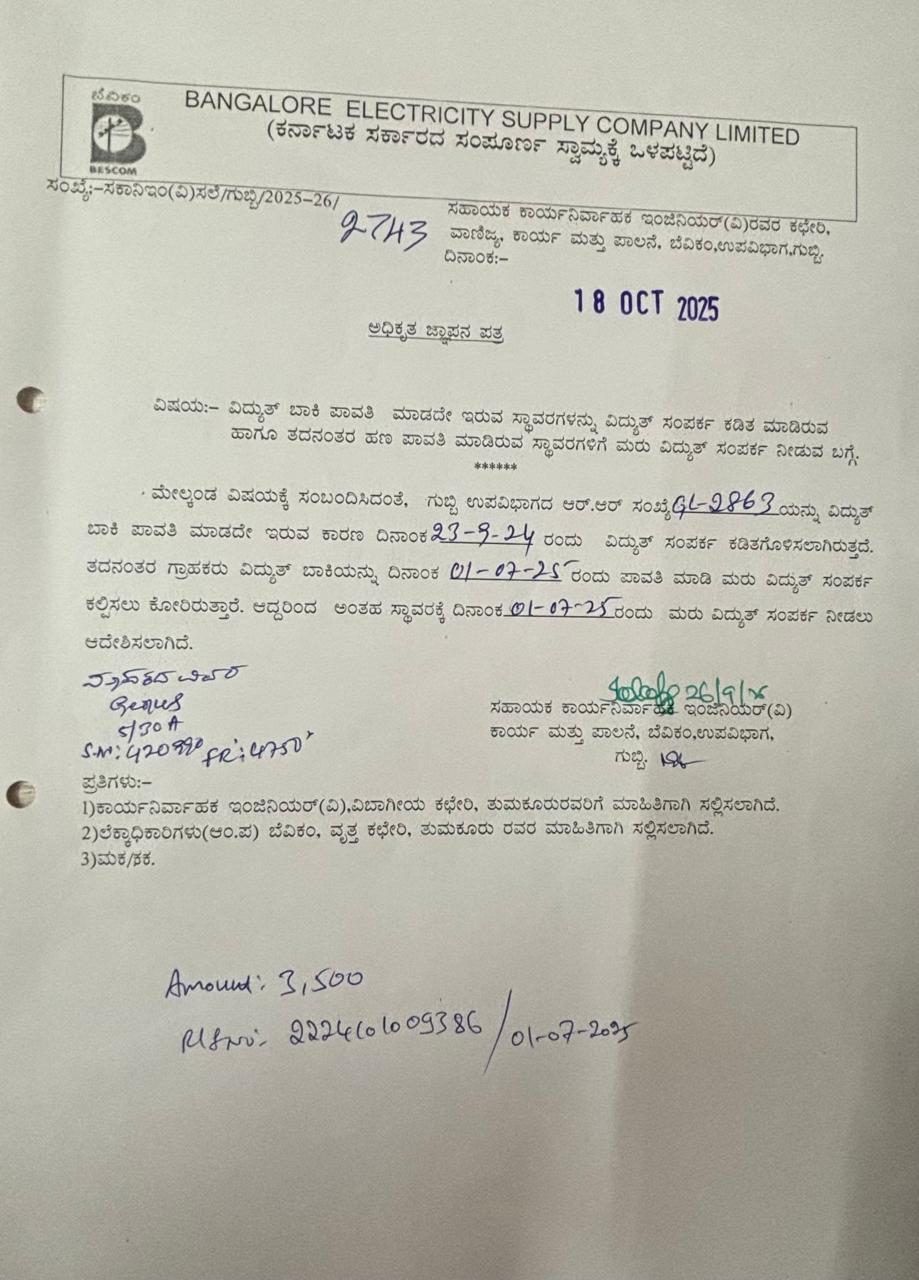 ಬೆವಿಕಂ
BESCOM
BANGALORE ELECTRICITY SUPPLY COMPANY LIMITED
(ಕರ್ನಾಟಕ ಸರ್ಕಾರದ ಸಂಪೂರ್ಣ ಸ್ವಾಮ್ಯಕ್ಕೆ ಒಳಪಟ್ಟಿದೆ)
ಸಂಖ್ಯೆ:-ಸಕಾನಿಇಂ(ವಿ)ಸಲೆ/ಗುಬ್ಬಿ/2025-26/ 2743
ಸಹಾಯಕ ಕಾರ್ಯನಿರ್ವಾಹಕ ಇಂಜಿನಿಯರ್(ವಿ)ರವರ ಕಛೇರಿ,
ವಾಣಿಜ್ಯ, ಕಾರ್ಯ ಮತ್ತು ಪಾಲನೆ, ಬೆವಿಕಂ,ಉಪವಿಭಾಗ,ಗುಬ್ಬಿ.
ದಿನಾಂಕ:-
18 OCT 2025
ಅಧಿಕೃತ ಜ್ಞಾಪನ ಪತ್ರ
ವಿಷಯ:- ವಿದ್ಯುತ್ ಬಾಕಿ ಪಾವತಿ ಮಾಡದೇ ಇರುವ ಸ್ಥಾವರಗಳನ್ನು ವಿದ್ಯುತ್ ಸಂಪರ್ಕ ಕಡಿತ ಮಾಡಿರುವ
ಹಾಗೂ ತದನಂತರ ಹಣ ಪಾವತಿ ಮಾಡಿರುವ ಸ್ಥಾವರಗಳಿಗೆ ಮರು ವಿದ್ಯುತ್ ಸಂಪರ್ಕ ನೀಡುವ ಬಗ್ಗೆ.
******
ಮೇಲ್ಕಂಡ ವಿಷಯಕ್ಕೆ ಸಂಬಂದಿಸಿದಂತೆ, ಗುಬ್ಬಿ ಉಪವಿಭಾಗದ ಆರ್.ಆರ್ ಸಂಖ್ಯೆ GL-2863 ಯನ್ನು ವಿದ್ಯುತ್
ಬಾಕಿ ಪಾವತಿ ಮಾಡದೇ ಇರುವ ಕಾರಣ ದಿನಾಂಕ 23-9-24 ರಂದು ವಿದ್ಯುತ್ ಸಂಪರ್ಕ ಕಡಿತಗೊಳಿಸಲಾಗಿರುತ್ತದೆ.
ತದನಂತರ ಗ್ರಾಹಕರು ವಿದ್ಯುತ್ ಬಾಕಿಯನ್ನು ದಿನಾಂಕ 01-07-25 ರಂದು ಪಾವತಿ ಮಾಡಿ ಮರು ವಿದ್ಯುತ್ ಸಂಪರ್ಕ
ಕಲ್ಪಿಸಲು ಕೋರಿರುತ್ತಾರೆ. ಆದ್ದರಿಂದ ಅಂತಹ ಸ್ಥಾವರಕ್ಕೆ ದಿನಾಂಕ 01-07-25 ರಂದು ಮರು ವಿದ್ಯುತ್ ಸಂಪರ್ಕ ನೀಡಲು
ಆದೇಶಿಸಲಾಗಿದೆ.
5/30A
26/9/25
ಸಹಾಯಕ ಕಾರ್ಯನಿರ್ವಾಹಕ ಇಂಜಿನಿಯರ್(ವಿ)
ಕಾರ್ಯ ಮತ್ತು ಪಾಲನೆ, ಬೆವಿಕಂ,ಉಪವಿಭಾಗ,
ಗುಬ್ಬಿ.
ಪ್ರತಿಗಳು:-
1)ಕಾರ್ಯನಿರ್ವಾಹಕ ಇಂಜಿನಿಯರ್(ವಿ),ವಿಬಾಗೀಯ ಕಛೇರಿ, ತುಮಕೂರುರವರಿಗೆ ಮಾಹಿತಿಗಾಗಿ ಸಲ್ಲಿಸಲಾಗಿದೆ.
2)ಲೆಕ್ಕಾಧಿಕಾರಿಗಳು(ಆಂ.ಪ) ಬೆವಿಕಂ, ವೃತ್ತ ಕಛೇರಿ, ತುಮಕೂರು ರವರ ಮಾಹಿತಿಗಾಗಿ ಸಲ್ಲಿಸಲಾಗಿದೆ.
3)ಮಕ/ಶಕ.
Amount: 3,500
01-07-2025